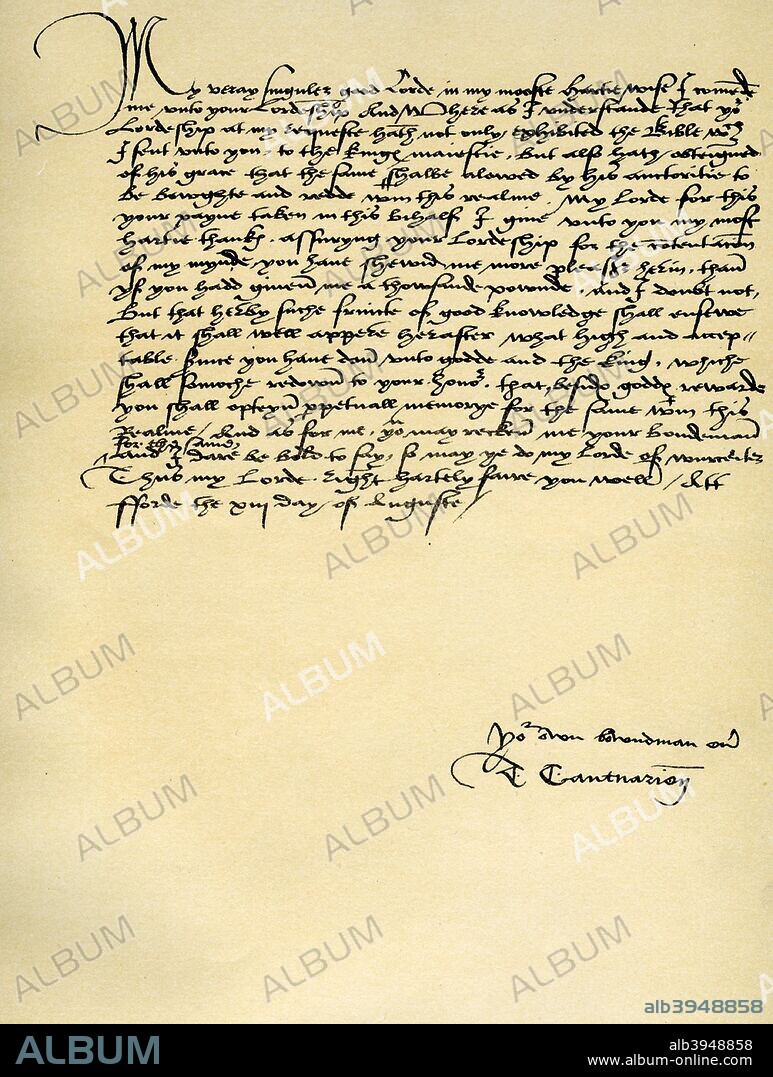 My veray singuler good Lorde in my mooste hartie wise I comēde
me unto your Lordeship And Where as I understande that yoʳ
Lordeship at my requeste hath not only exhibited the Bible wch
I sent unto you, to the kings maiestie, but also hath obteigned
of his grace that the same shalbe alowed by his auctoritie to
be bowghte and redde wᵗin this realme, My Lorde for this
your payne taken in this bihalf I give unto you my most
hartie thanks, assuryng your Lordeship for the cōtentacōn
of my mynde, you have shewid me more pleasʳ herin, than
yf you hadd given me a thowsande pownde, And I doubt not,
But that herby suche fruicte of good knowledge shall ensewe
that it shall well appere herafter what high and accep=
table service you have don unto godde and the king, whiche
shall somoche redown to your honoʳ, that, besids godds rewarde
you shall opteyn ppetuall memorye for the same wᵗin this
Realme, And as for me, yoᵘ may recken me your bondeman
for the same,
And I dare be bold to say, so may ye do my Lorde of wurceiter
Thus my Lorde, right hartely fare you well, Att
fforde the xiij day of Auguste
Yoʳ own bowndman ev
T Cantuarien
ALBUM
alb3948858
ALBUM
alb3948858
www.album-online.com